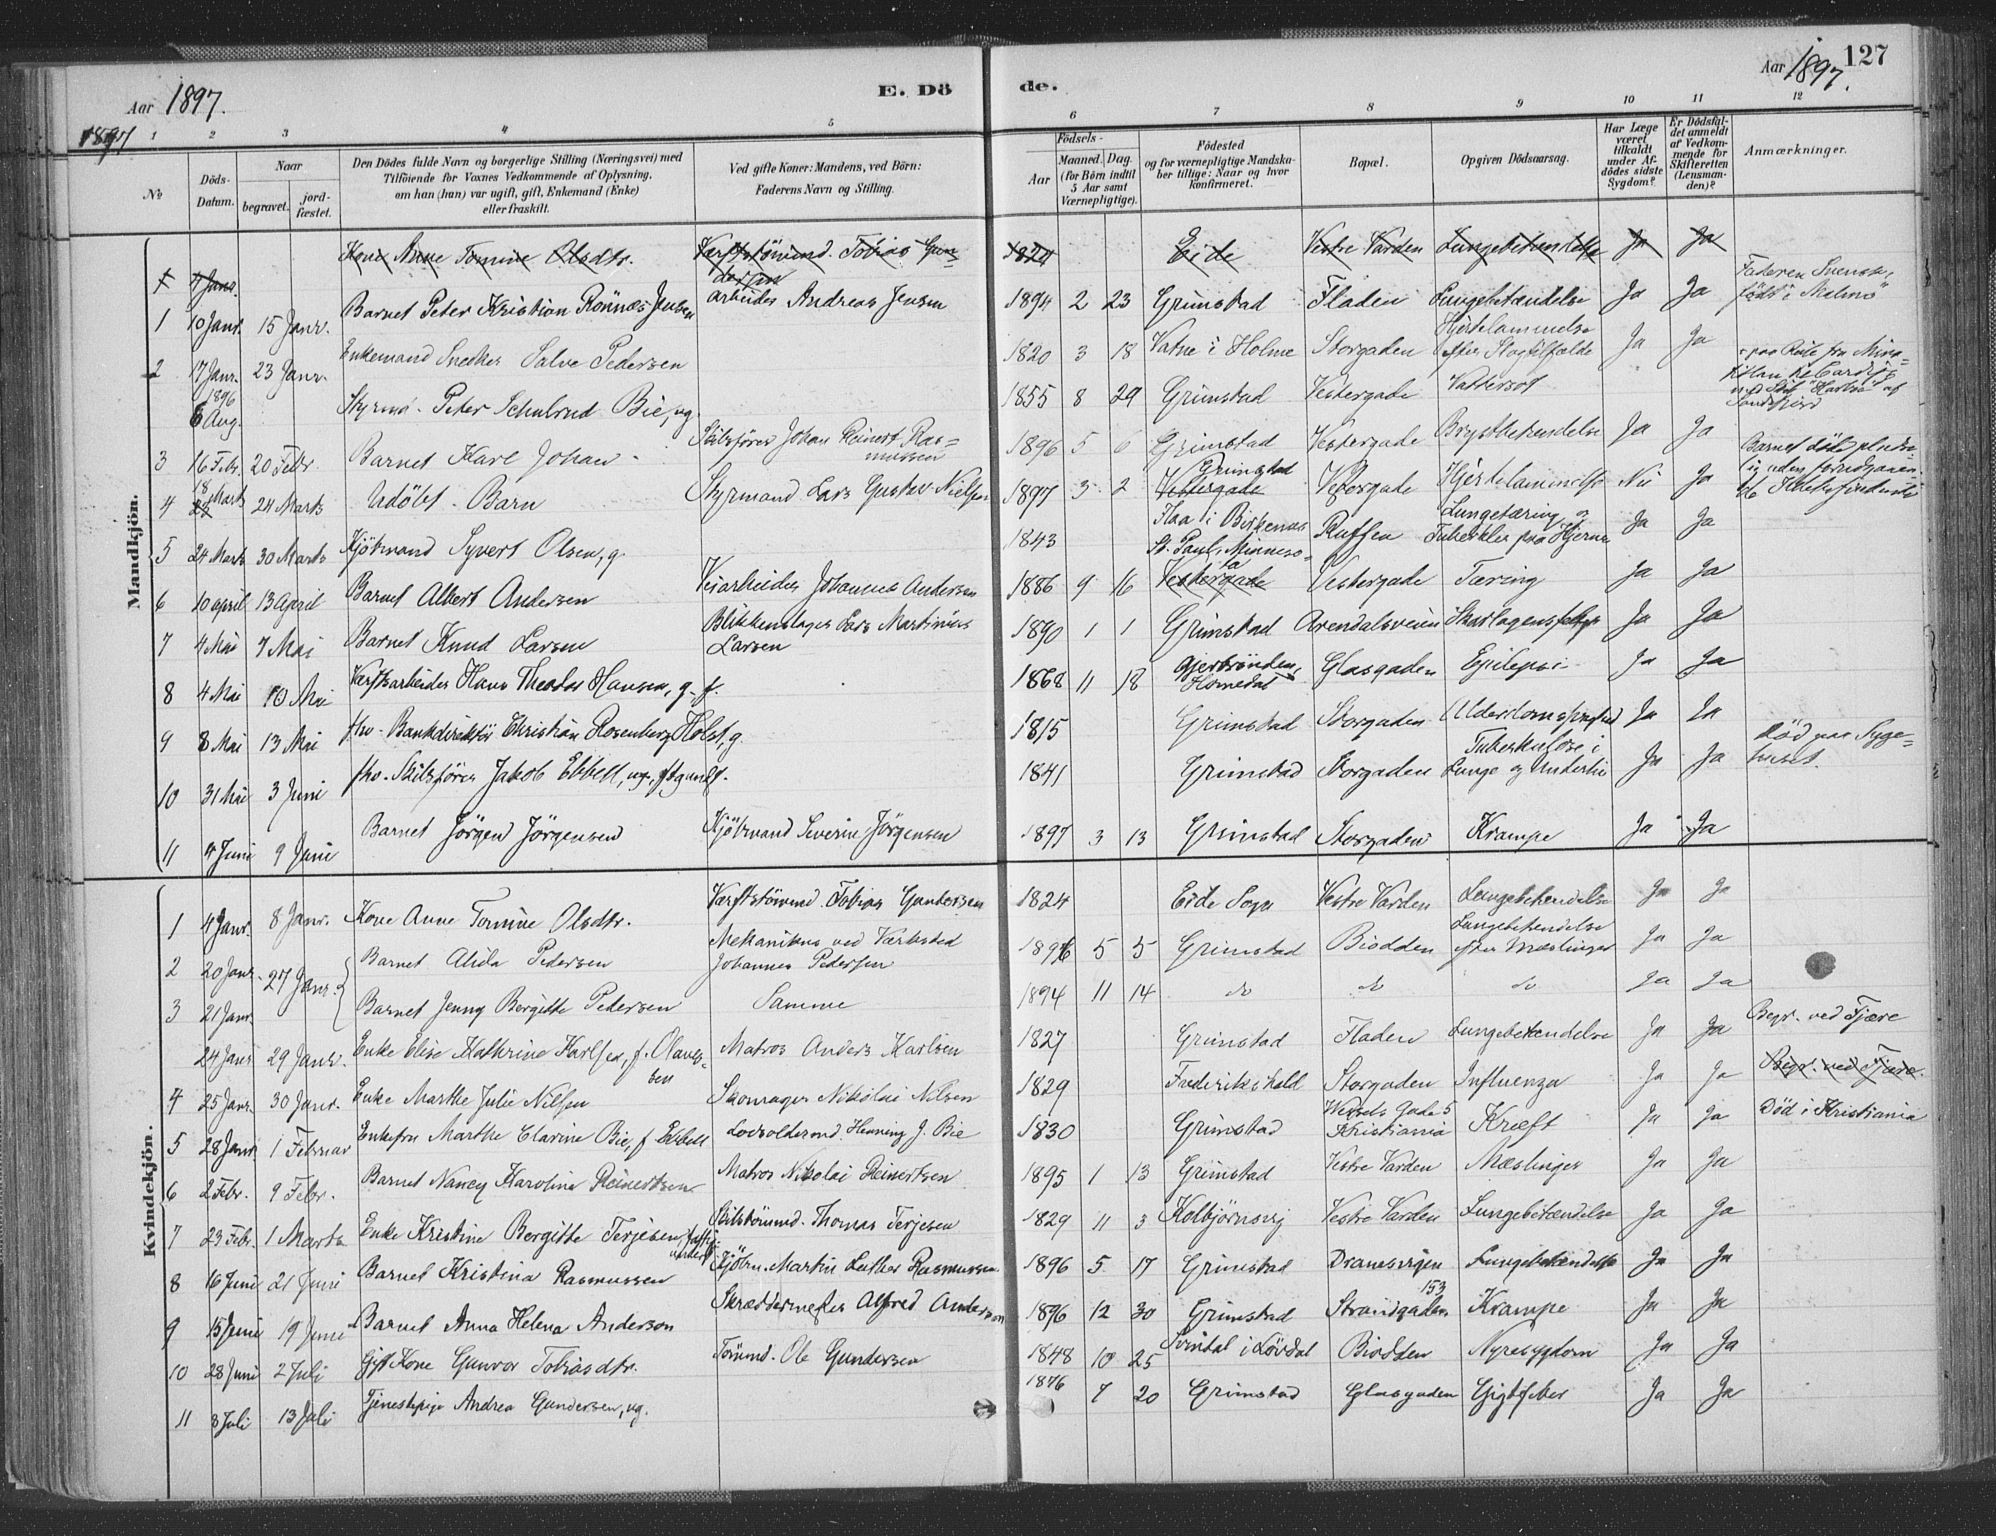 Aar 1897.
E. Dö
de.
Aar 1897.
127
1897
1 2 3 4 5 6 7 8 9 10 11 12
№
Döds-Datum.
Naar
begravet.
jord-fæstet.
Den Dödes fulde Navn og borgerlige Stilling (Næringsvei) med
Tilföiende for Voxnes Vedkommende af Oplysning,
om han (hun) var ugift, gift, Enkemand (Enke)
eller fraskilt.
Ved gifte Koner: Mandens, ved Börn:
Faderens Navn og Stilling.
Födsels-
Aar
Maaned. Dag.
(for Börn indtil
5 Aar samt
Værnepligtige).
Födested
og for værnepligtige Mandska-
ber tillige: Naar og hvor
konfirmeret.
Bopæl.
Opgiven Dödsaarsag.
Har Læge
været
tilkaldt
under Af-
dödes sidste
Sygdom?
Er Dödsfal-
det anmeldt
af Vedkom-
mende for
Skifteretten
(Lensman-
den)?
Anmærkninger.
Mandkjön.
1 4 Janr. Kone Anne Tomine Olsdtr. Værftstömmd. Tobias Gundersen 1824 Eide Vestre Varden Lungebetændelse Ja Ja
1 10 Janr. 15 Janr. Barnet Peter Kristian Rönnes Jensen arbeider Andreas Jensen 1894 2 23 Grimstad Fladen Lungebetændelse Ja Ja Faderen Svensk, född i Malmö
2 17 Janr. 23 Janr. Enkemand Snedker Salve Pedersen 1820 3 18 Vatne i Holme Storgaden Hjertelammelse efter Slagtilfælde Ja Ja
1896 6 Aug. Styrmd. Peter Schulrud Bie, ug. 1855 8 29 Grimstad Vestergade Vattersot paa Reise fra
3 16 Febr. 20 Febr. Barnet Karl Johan Skibsförer Johan Reinert Rasmussen 1896 5 6 Grimstad Vestergade Brystbetændelse Ja Ja
4 18 Marts 24 Marts Udöbt Barn Styrmand Lars Gustav Nielsen 1897 3 2 Grimstad Vestergade Vestergade Hjertelammelse Nei Ja Barnet döde
5 24 Marts 30 Marts Kjöbmand Syvert Olsen, g. 1843 Flaa i Birkenes Ruffen Lungetæring og Tuberkler paa Hjernen Ja Ja
6 10 april 13 April Barnet Albert Andersen Veiarbeider Johannes Andersen 1886 9 16 St. Paul, Minnesota Vestergade Vestergade Tæring Ja Ja
7 4 Mai 7 Mai Barnet Knud Larsen Blikkenslager Lars Martinius Larsen 1890 1 1 Grimstad Arendalsveien Skarlagensfeber Ja Ja
8 4 Mai 10 Mai Værftsarbeider Hans Theodor Hansen, g. f. 1868 11 18 Gjerbrönden, Homedal Glasgaden Epilepsi Ja Ja
9 8 Mai 13 Mai fhv. Bankdirektör Christian Rosenberg Holst, g. 1815 Grimstad Storgaden Alderdomssvaghed Ja Ja
10 31 Mai 3 Juni fhv. Skibsförer Jakob Ebbell, ug. 1841 Grimstad Storgaden Tuberkulose i Lunge og Underliv Ja Ja Död paa Sygehuset.
11 4 Juni 9 Juni Barnet Jörgen Jörgensen Kjöbmand Severin Jörgensen 1897 3 13 Grimstad Storgaden Krampe Ja Ja
Kvindekjön.
1 4 Janr. 8 Janr. Kone Anne Tomine Olsdtr. Værftstömmd. Tobias Gundersen 1824 Eide Sogn Vestre Varden Lungebetændelse Ja Ja
2 20 Janr. 27 Janr. Barnet Alida Pedersen Mekanikus ved Værksted Johannes Pedersen 1896 5 5 Grimstad Biodden Lungebetændelse efter Mæslinger Ja Ja
3 21 Janr. Barnet Jenny Bergitte Pedersen Samme 1894 11 14 do do do Ja Ja
24 Janr. 29 Janr. Enke Elise Kathrine Karlsen, f. Olavessen Matros Anders Karlsen 1827 Grimstad Fladen Lungebetændelse Ja Ja Begr. ved Fjære
4 25 Janr. 30 Janr. Enke Marthe Julie Nilsen Skomager Nikolai Nilsen 1829 Frederikshald Storgaden Influenza Ja Ja Begr. ved Fjære.
5 28 Janr. 1 Februar Enkefru Marthe Clarine Bie, f Ebbell Lodsoldermd. Henning J. Bie 1830 Grimstad Wessels Gade 5 Kristiania Kræft Ja Ja Död i Kristiania
6 2 Febr. 9 Febr. Barnet Nancy Karoline Reinertsen Matros Nikolai Reinertsen 1895 1 13 Grimstad Vestre Varden Mæslinger Ja Ja
7 23 Febr. 1 Marts Enke Kristine Bergitte Terjesen Skibstömmd. Thomas Terjesen 1829 11 3 Kolbjörnsvig Vestre Varden Lungebetændelse Ja Ja
8 16 Juni 21 Juni Barnet Kristina Rasmussen Kjöbm. Martin Luther Rasmussen 1896 5 17 Grimstad Dranesvigen Lungebetændelse Ja Ja
9 15 Juni 19 Juni Barnet Anna Helena Anderson Skræddermester Alfred Anderson 1896 12 30 Grimstad Strandgaden 153 Krampe Ja Ja
10 28 Juni 2 Juli Gift Kone Gunvor Tobiasdtr. Tömmd. Ole Gundersen 1848 10 25 Svindal i Lövdal Biodden Nyresygdom Ja Ja
11 8 Juli 13 Juli Tjenestepige Andrea Gundersen, ug. 1876 7 20 Grimstad Glasgaden Gigtfeber Ja Ja